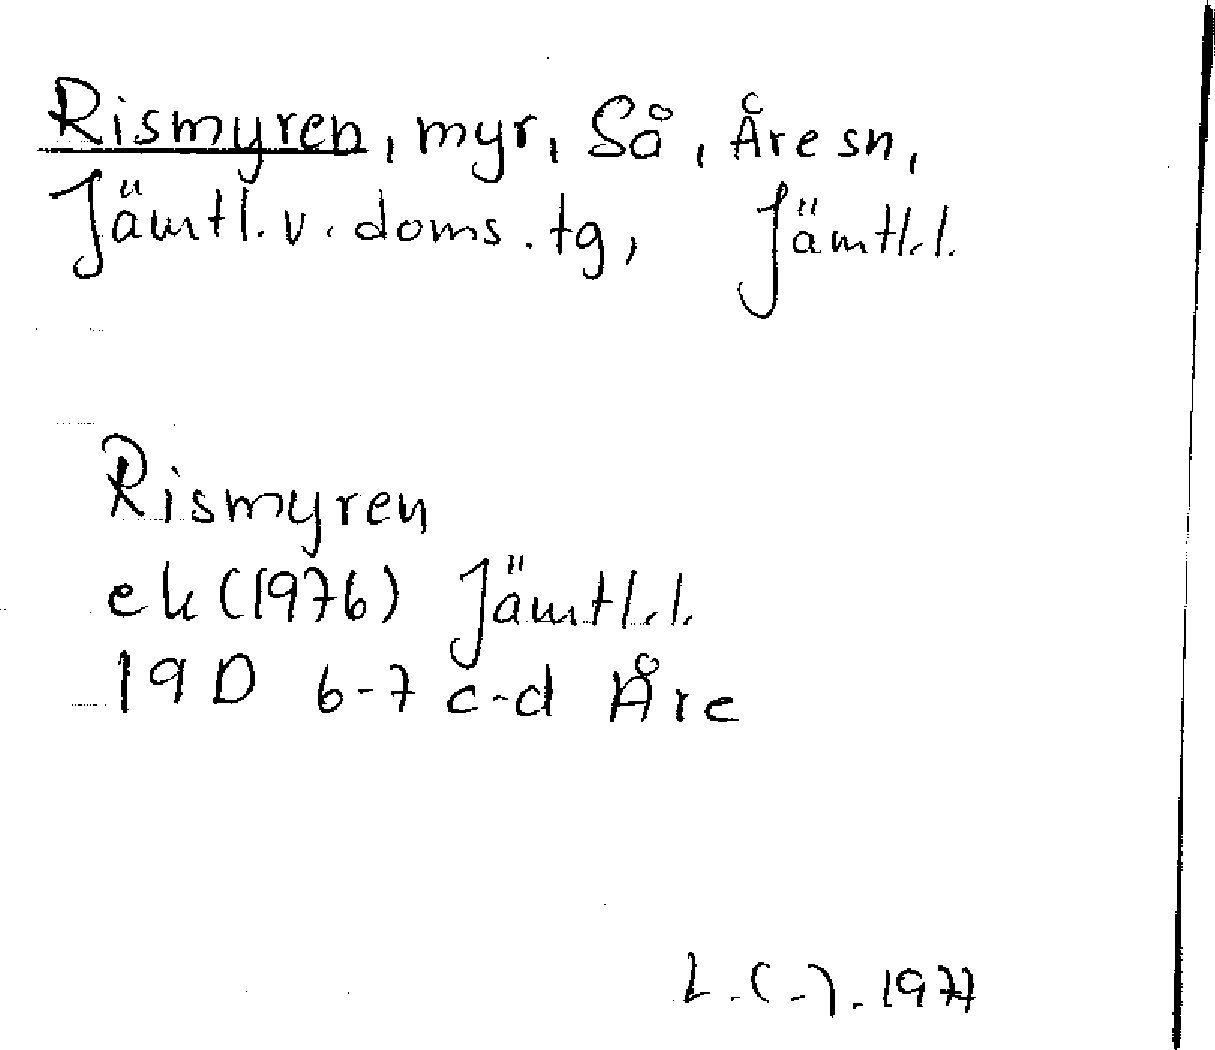 Rismyren, myr, Så, Åre sn,
Jämtl. v. doms. tg, Jämtl. l.
Rismyren
ek (1976) Jämtl. l.
19 D 6-7 c-d Åre
L.C-J. 1977